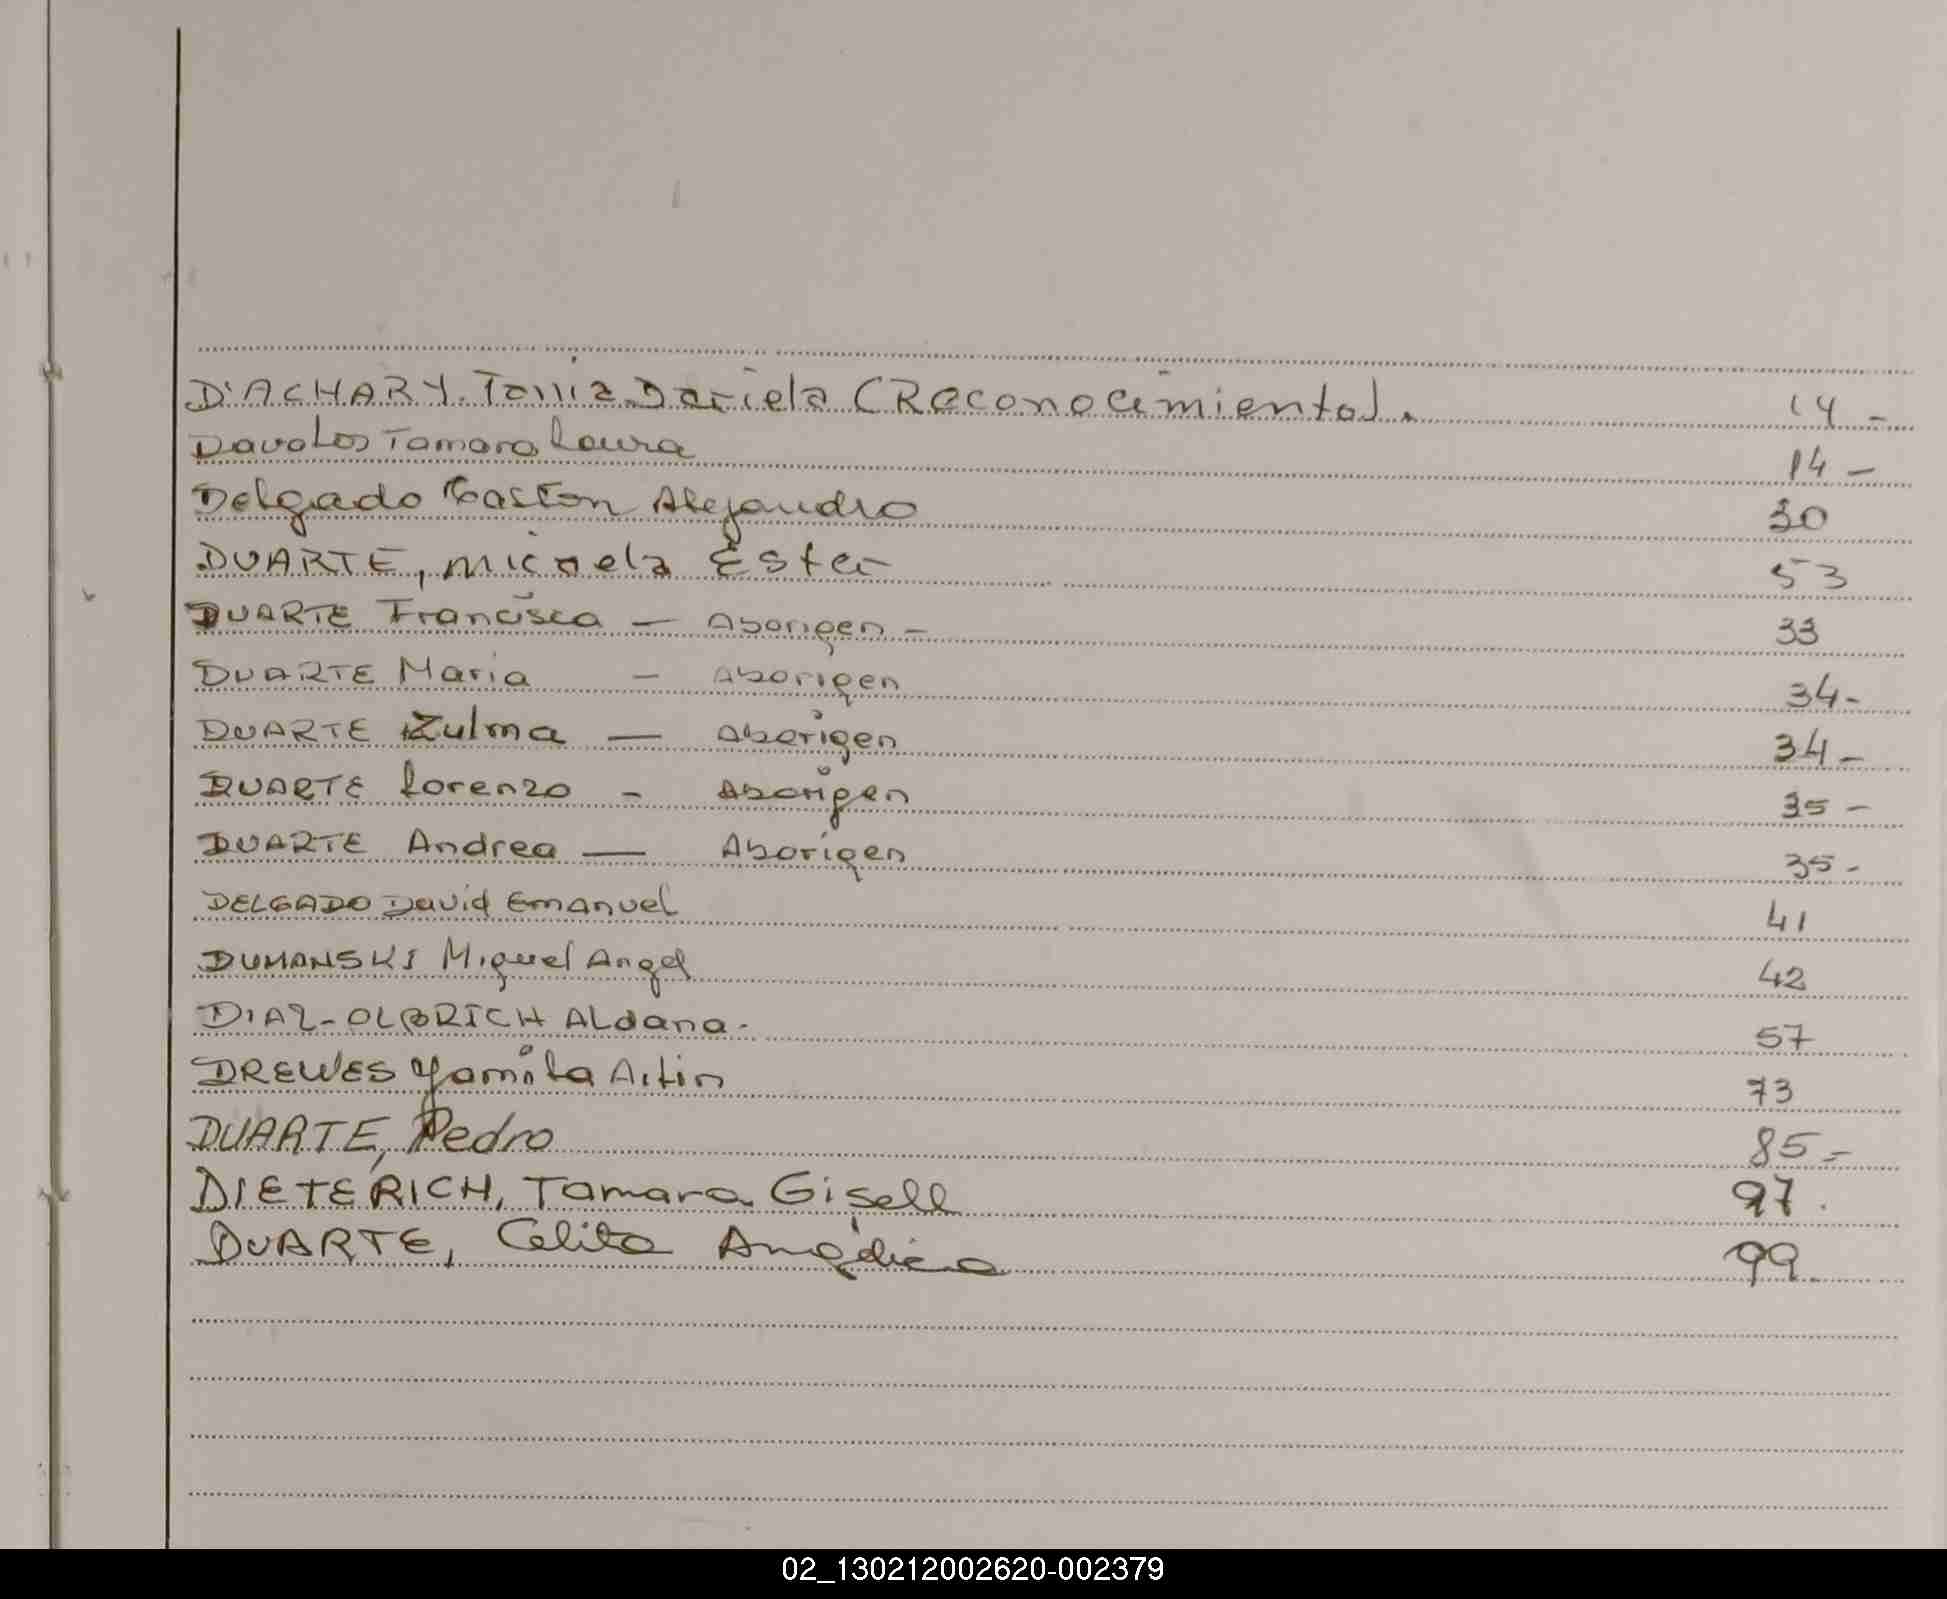 D'ACHARY. Tania Dariela (Reconocimiento). 14 -
Davalos Tamara Laura 14 -
Delgado Gaston Alejandro 30
DUARTE, Micaela Ester 53
DUARTE Francisca - Aborigen - 33
DUARTE Maria - Aborigen 34 -
DUARTE Zulma - Aborigen 34 -
DUARTE Lorenzo - Aborigen 35 -
DUARTE Andrea - Aborigen 35 -
DELGADO David Emanuel 41
DUMANSKI Miguel Angel 42
DIAZ-OLBRICH Aldana. 57
DREWES Yamila Ailin 73
DUARTE, Pedro 85 -
DIETERICH, Tamara Gisell 97.
DUARTE, Celita Angélica 99.
02_130212002620-002379